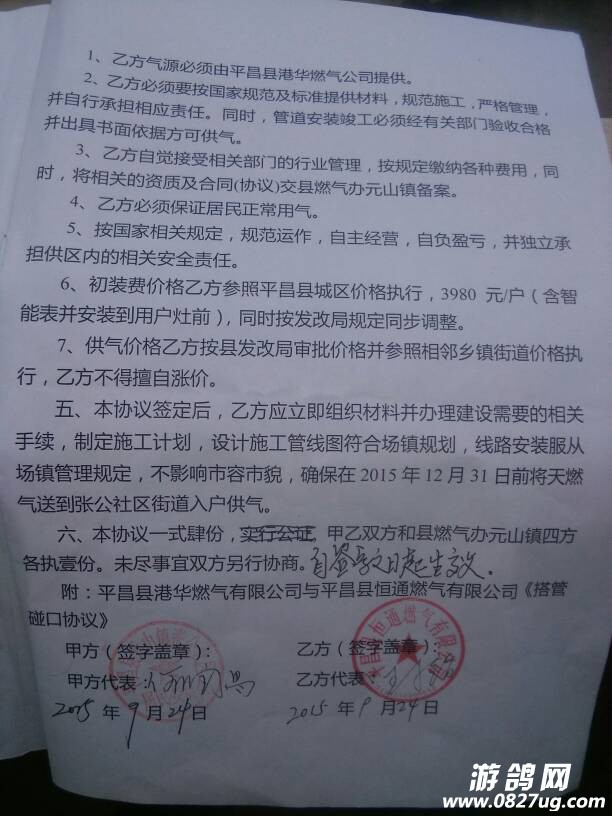 1、乙方气源必须由平昌县港华燃气公司提供。
2、乙方必须要按国家规范及标准提供材料，规范施工，严格管理，
并自行承担相应责任。同时，管道安装竣工必须经有关部门验收合格
并出具书面依据方可供气。
3、乙方自觉接受相关部门的行业管理，按规定缴纳各种费用，同
时，将相关的资质及合同(协议)交县燃气办元山镇备案。
4、乙方必须保证居民正常用气。
5、按国家相关规定，规范运作，自主经营，自负盈亏，并独立承
担供区内的相关安全责任。
6、初装费价格乙方参照平昌县城区价格执行，3980 元/户（含智
能表并安装到用户灶前），同时按发改局规定同步调整。
7、供气价格乙方按县发改局审批价格并参照相邻乡镇街道价格执
行，乙方不得擅自涨价。
五、本协议签定后，乙方应立即组织材料并办理建设需要的相关
手续，制定施工计划，设计施工管线图符合场镇规划，线路安装服从
场镇管理规定，不影响市容市貌，确保在 2015 年 12 月 31 日前将天燃
气送到张公社区街道入户供气。
六、本协议一式肆份，实行公证，甲乙双方和县燃气办元山镇四方
各执壹份。未尽事宜双方另行协商。自签字之日起生效.
附：平昌县港华燃气有限公司与平昌县恒通燃气有限公司《搭管
碰口协议》
甲方（签字盖章）：
乙方（签字盖章）：
甲方代表：
乙方代表：
2015 年 9 月 24 日
2015 年 9 月 24 日
恒通燃气有限
游鸽网
www.0827ug.com